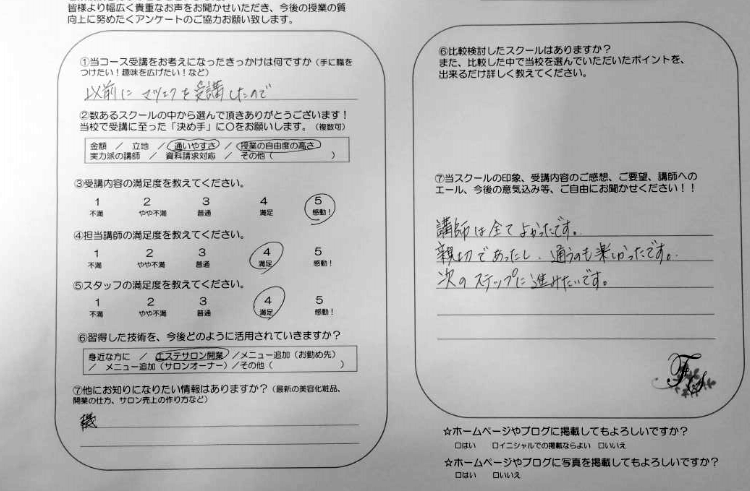 皆様より幅広く貴重なお声をお聞かせいただき、今後の授業の質
向上に努めたくアンケートのご協力お願い致します。
①当コース受講をお考えになったきっかけは何ですか(手に職を
つけたい!趣味を広げたい!など)
以前にマツエクを受講したので
②数あるスクールの中から選んで頂きありがとうございます!
当校で受講に至った「決め手」に〇をお願いします。(複数可)
金額 / 立地 / 通いやすさ / 授業の自由度の高さ
実力派の講師 / 資料請求対応 / その他( )
③受講内容の満足度を教えてください。
1 2 3 4 5
不満 やや不満 普通 満足 感動!
④担当講師の満足度を教えてください。
1 2 3 4 5
不満 やや不満 普通 満足 感動!
⑤スタッフの満足度を教えてください。
1 2 3 4 5
不満 やや不満 普通 満足 感動!
⑥習得した技術を、今後どのように活用されていきますか?
身近な方に / エステサロン開業 /メニュー追加(お勤め先)
/ メニュー追加(サロンオーナー) /その他( )
⑦他にお知りになりたい情報はありますか?(最新の美容化粧品、
開業の仕方、サロン売上の作り方など)
⑥比較検討したスクールはありますか?
また、比較した中で当校を選んでいただいたポイントを、
出来るだけ詳しく教えてください。
⑦当スクールの印象、受講内容のご感想、ご要望、講師への
エール、今後の意気込み等、ご自由にお聞かせください!!
講師は全てよかったです。
親切であったし、通うのも楽しかったです。
次のステップに進みたいです。
☆ホームページやブログに掲載してもよろしいですか?
□はい □イニシャルでの掲載ならよい □いいえ
☆ホームページやブログに写真を掲載してもよろしいですか?
□はい □いいえ